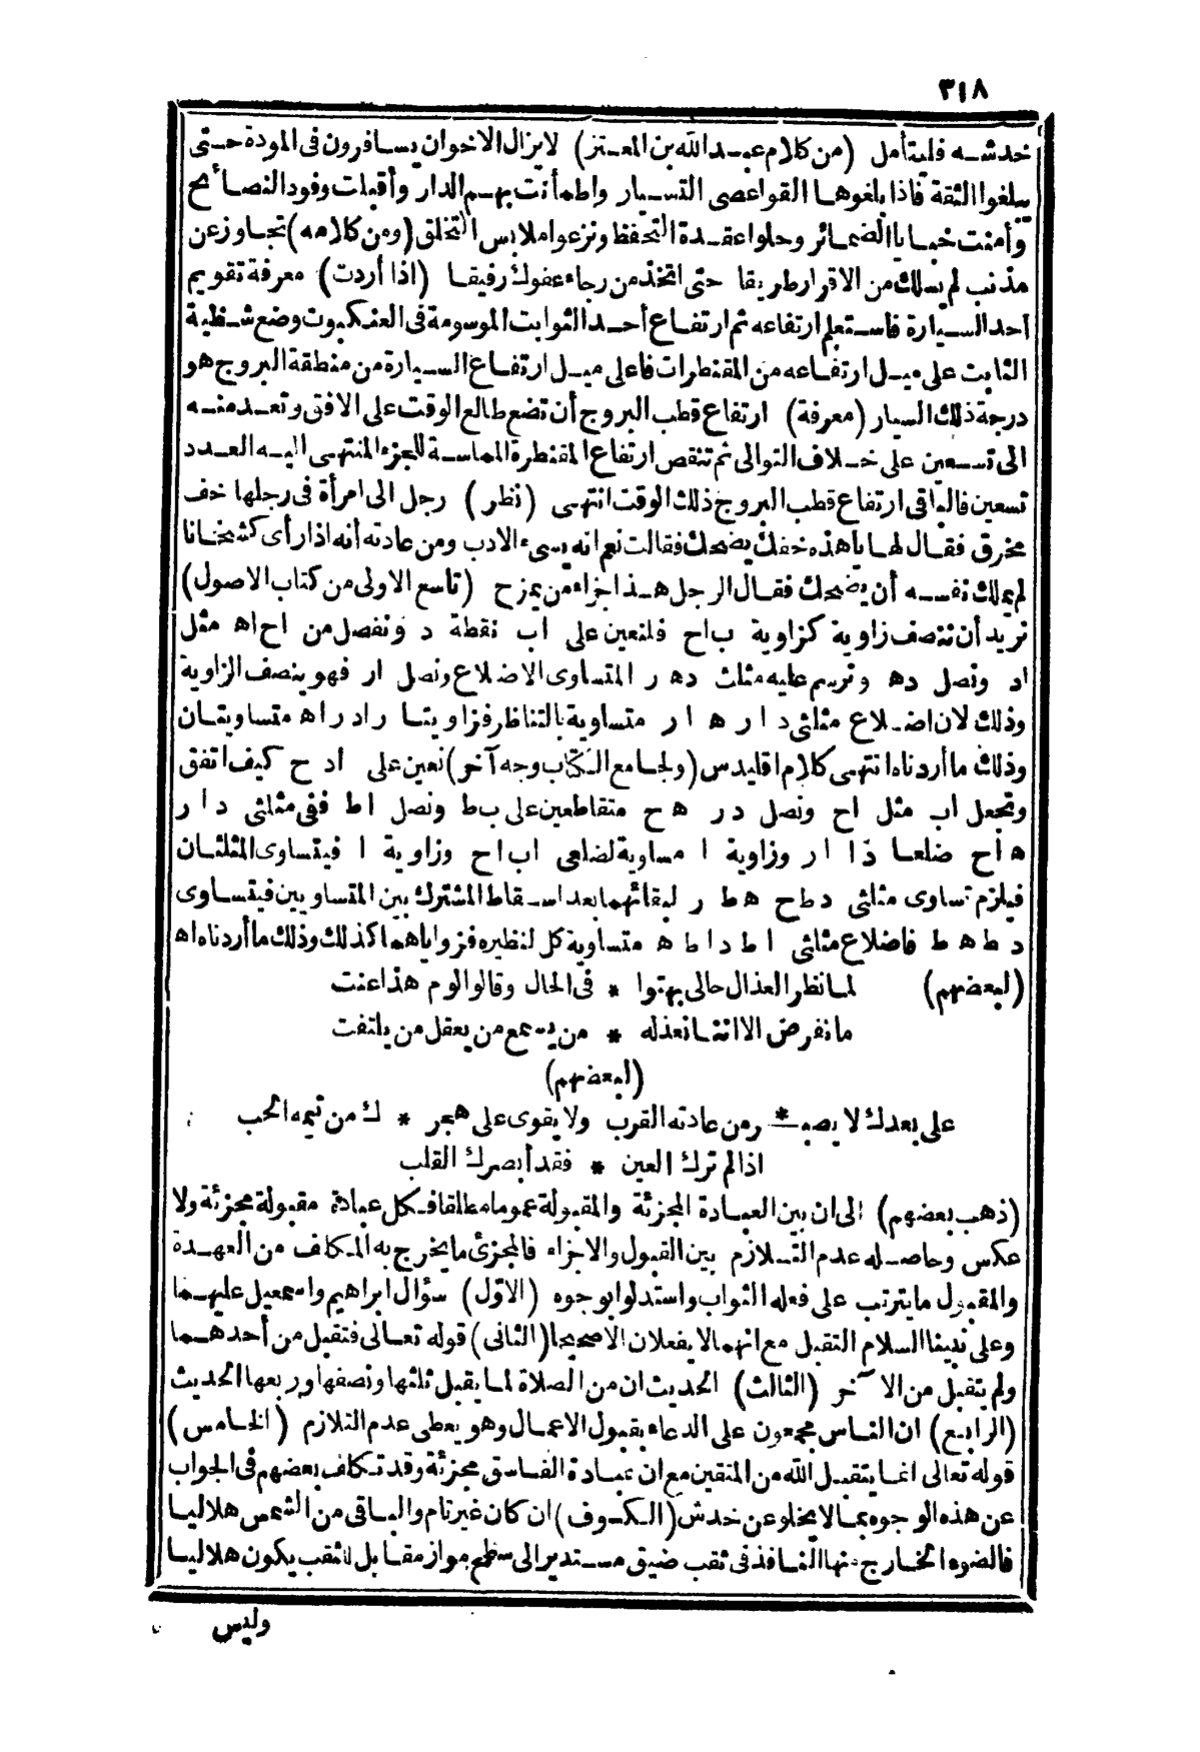 ٣١٨
خدشه فليتأمل (من كلام عبد الله بن المعتز) لا يزال الاخوان يسافرون فى المودة حتى
يبلغوا الثقة فاذا بلغوها القوا عصى التسيار واطمأنت بهم الدار وأقبلت وفود النصائح
وأمنت خبايا الضمائر وحلوا عقدة التحفظ ونزعوا ملابس التخلق (ومن كلامه) تجاوز عن
مذنب لم يسلك من الاقرار طريقا حتى اتخذ من رجاء عفوك رفيقا (اذا أردت) معرفة تقويم
أحد السيارة فاستعلم ارتفاعه ثم ارتفاع أحد الثوابت الموسومة فى العنكبوت وضع شظية
الثابت على ميل ارتفاعه من المقنطرات فاعلى ميل ارتفاع السيارة من منطقة البروج هو
درجة ذلك السيار (معرفة) ارتفاع قطب البروج أن تضع طالع الوقت على الافق وتعد منه
الى تسعين على خلاف التوالى ثم تنقص ارتفاع المقنطرة المماسة للجزء المنتهى اليه العدد
تسعين فالباقى ارتفاع قطب البروج ذلك الوقت انتهى (نظر) رجل الى امرأة فى رجلها خف
مخرق فقال لها يا هذه خفك يضحك فقالت نعم انه يسىء الادب ومن عادته أنه اذا رأى كشخانا
لم يملك نفسه أن يضحك فقال الرجل هذا جزاء من يمزح (تاسع الاولى من كتاب الاصول)
نريد أن ننصف زاوية كزاوية ب ا ح فلنعين على اب نقطة د ونفصل من اح اه مثل
اد ونصل ده ونرسم عليه مثلث ده ر المتساوى الاضلاع ونصل ار فهو ينصف الزاوية
وذلك لان اضلاع مثلثى د ا ر ه ا ر متساوية بالتناظر فزاويتا ر اد ر اه متساويتان
وذلك ما أردناه انتهى كلام اقليدس (ولجامع الكتاب وجه آخر) نعين على اد ح كيف اتفق
ونجعل اب مثل اح ونصل د ر ه ح متقاطعين على ب ط ونصل اط ففى مثلثى د ا ر
ه ا ح ضلعا د ا ا ر وزاوية ا مساوية لضلعى اب اح وزاوية ا فيتساوى المثلثان
فيلزم تساوى مثلثى د ط ح ه ط ر لبقائهما بعد اسقاط المشترك بين المتساويين فيتساوى
د ط ه ط فاضلاع مثلثى ا ط د ا ط ه متساوية كل لنظيره فزواياهما كذلك وذلك ما أردناه اه
(لبعضهم) لما نظر العذال حالى بهتوا * فى الحال وقالوا لوم هذا عنت
ما نفرض الا اننا نعذله * من يسمع من يعقل من يلتفت
(لبعضهم)
على بعدك لا يصبـ * ر من عادته القرب ولا يقوى على هجر * ك من تيمه الحب
اذا لم ترك العين * فقد أبصرك القلب
(ذهب بعضهم) الى ان بين العبادة المجزئة والمقبولة عموما مطلقا فكل عبادة مقبولة مجزئة ولا
عكس وحاصله عدم التلازم بين القبول والاجزاء فالمجزئ ما يخرج به المكلف من العهدة
والمقبول ما يترتب على فعله الثواب واستدلوا بوجوه (الاول) سؤال ابراهيم واسمعيل عليهما
وعلى نبينا السلام التقبل مع انهما لا يفعلان الا صحيحا (الثانى) قوله تعالى فتقبل من أحدهما
ولم يتقبل من الآخر (الثالث) الحديث ان من الصلاة لما يقبل ثلثها ونصفها وربعها الحديث
(الرابع) ان الناس مجمعون على الدعاء بقبول الاعمال وهو يعطى عدم التلازم (الخامس)
قوله تعالى انما يتقبل الله من المتقين مع ان عبادة الفاسق مجزئة وقد تكلف بعضهم فى الجواب
عن هذه الوجوه بما لا يخلو عن خدش (الكسوف) ان كان غير تام والباقى من الشمس هلاليا
فالضوء الخارج منها النافذ فى ثقب ضيق مستدير الى سطح مواز مقابل للثقب يكون هلاليا
وليس